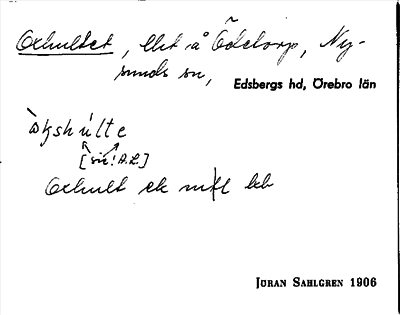 Oxhultet, lht å Ödetorp, Ny-
sunds sn,
Edsbergs hd, Örebro län
ò̀kshúlte
[sic! A.L.]
Oxhult ek
JÖRAN SAHLGREN 1906